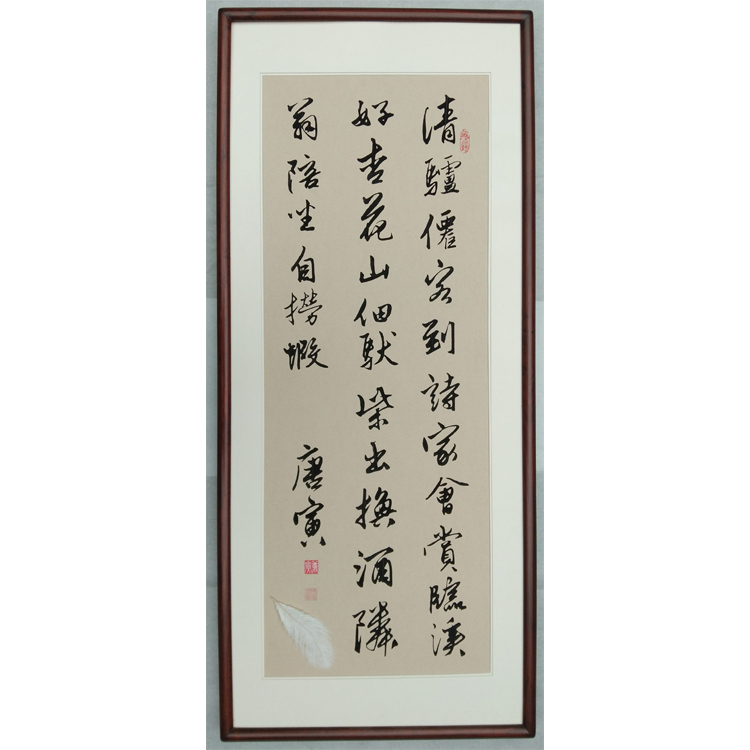 清驢僊客到詩家會賞臨溪
好杏花山佃馱柴出換酒隣
翁陪坐自撈蝦
唐寅